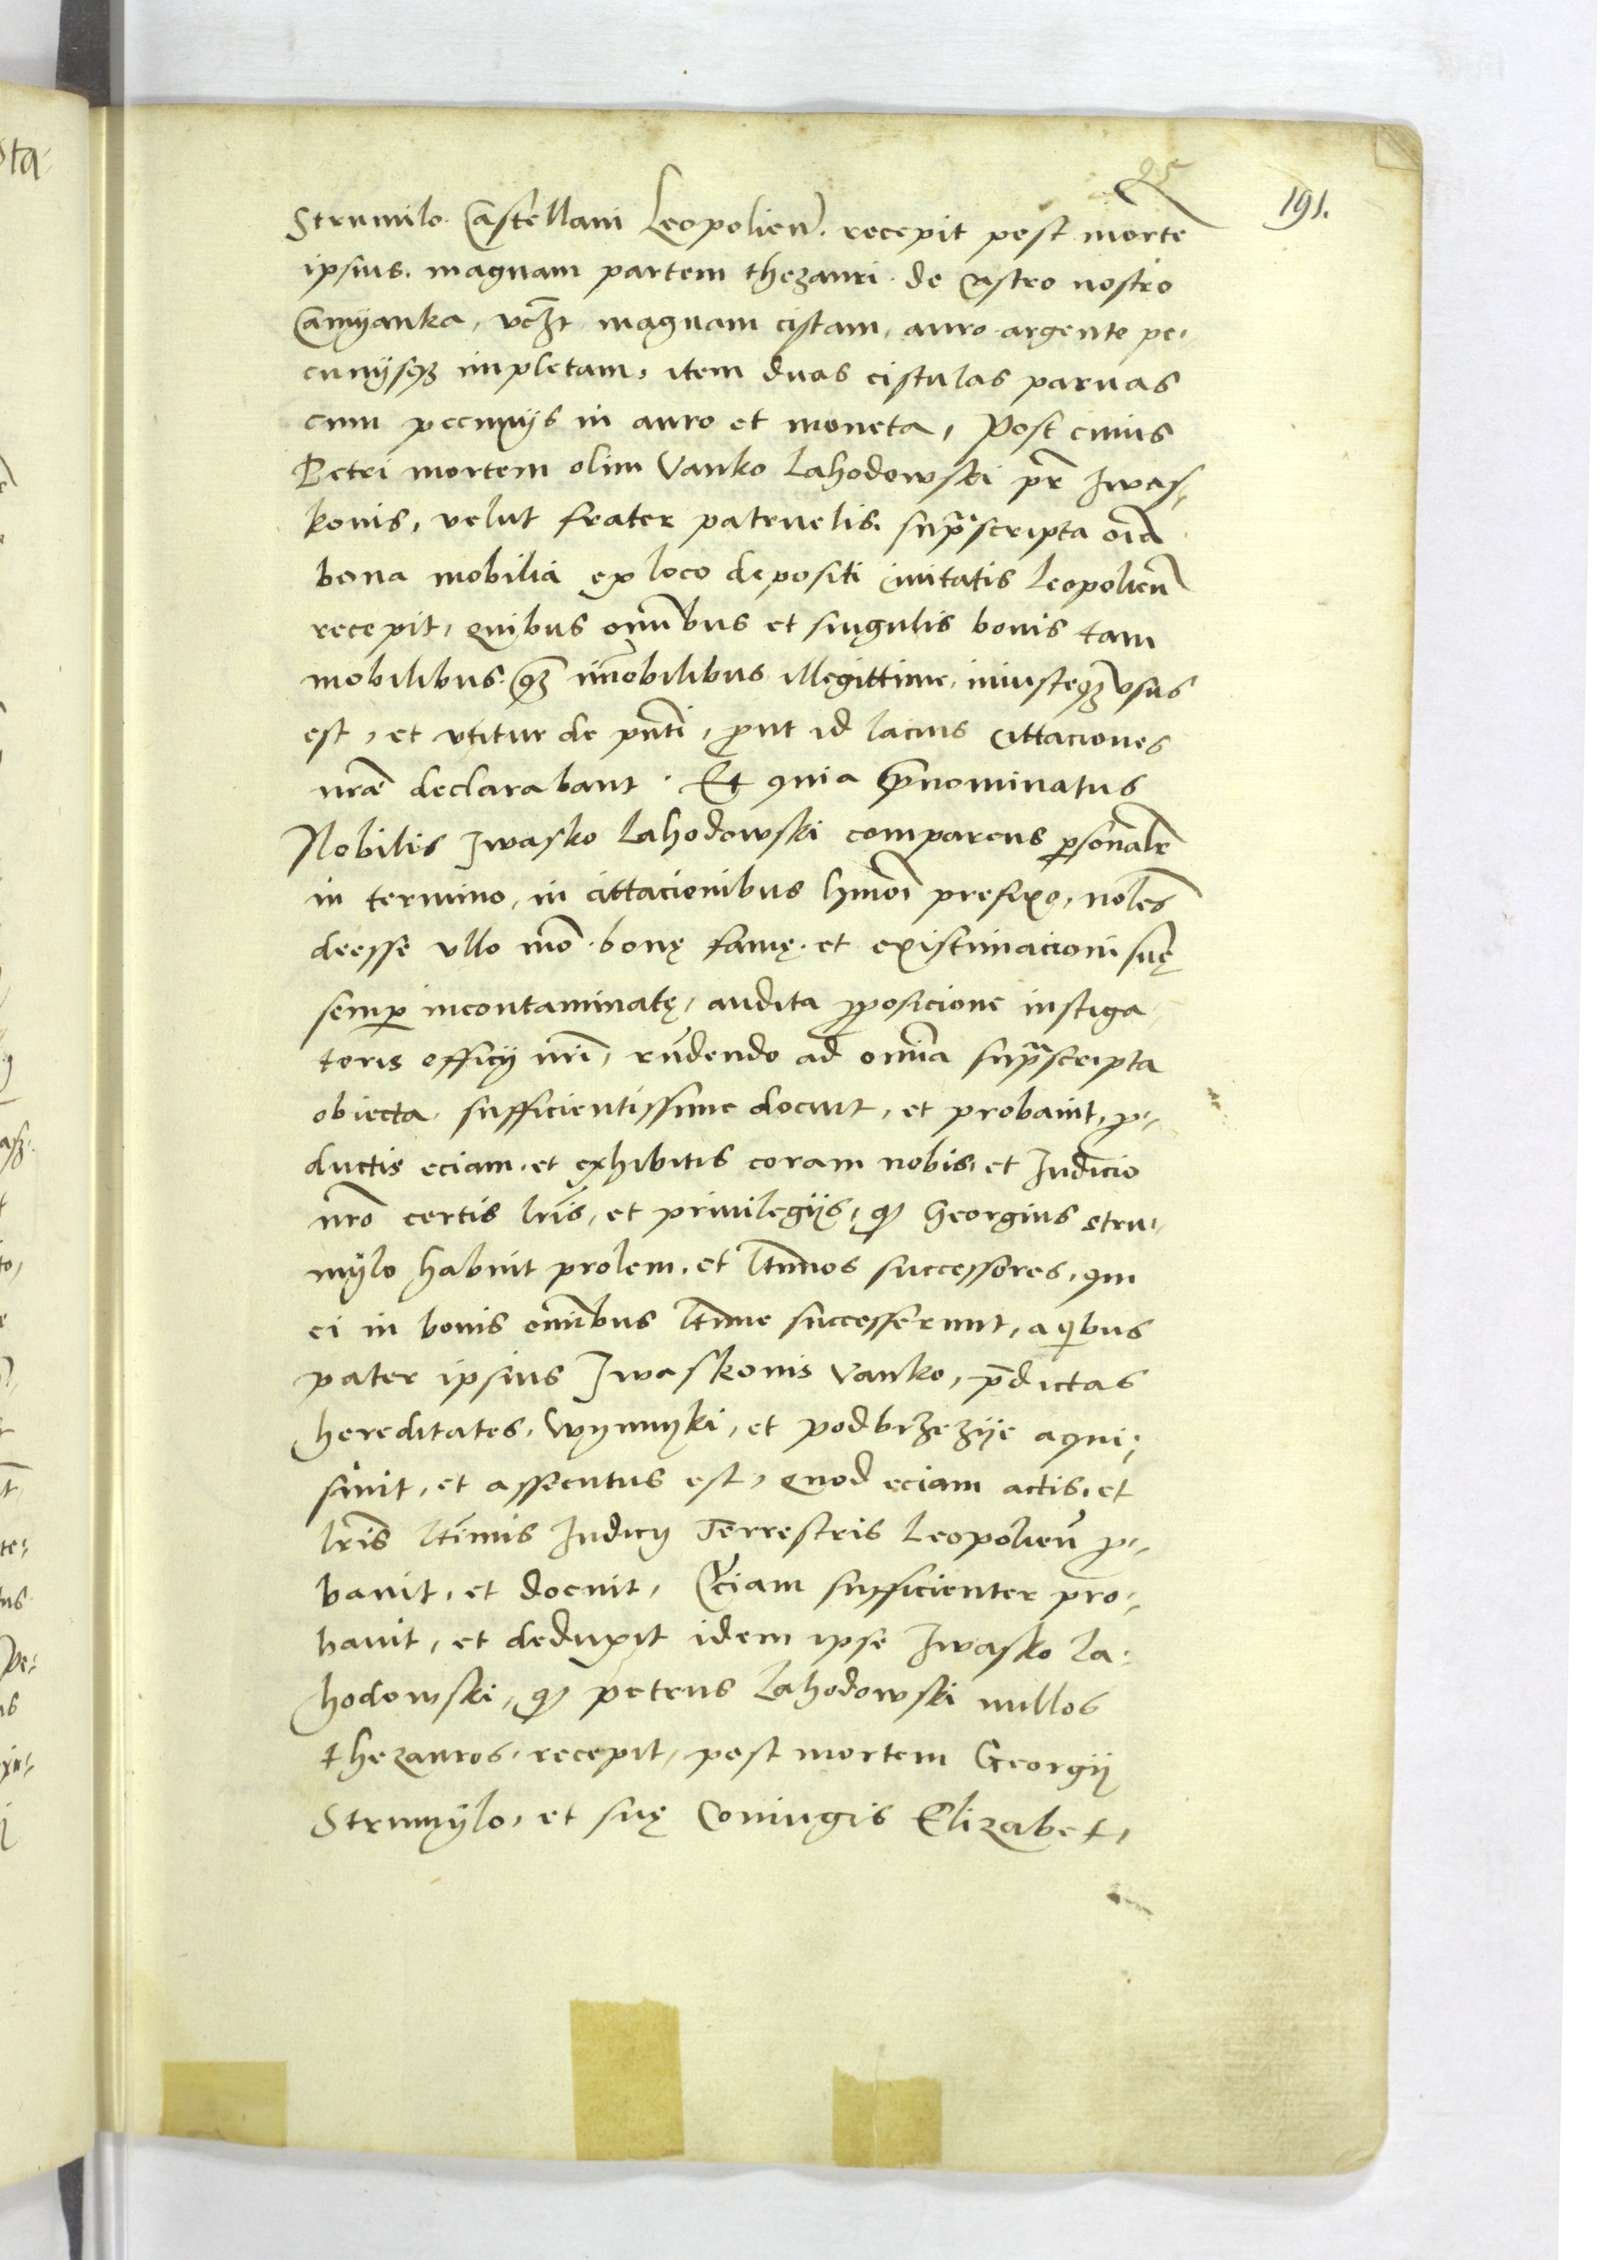 95
191.
Strumilo Castellani Leopolien̄. recepit post mortē
ipsius. magnam partem thezauri. de Castro nostro
Camyanka, vcꝫt magnam cistam, auro argento pe-
cunijsqꝫ impletam, item duas cistulas paruas
cum pecunijs in auro et moneta, Post cuius
Petri mortem olim Vanko Lahodowski pr̄ Iwas-
konis, velut frater patruelis. supͣscripta oīā
bona mobilia ex loco depositi ciuitatis Leopolien̄
recepit, Quibus om̄ibus et singulis bonis tam
mobilibus. qꝫ im̄obilibus illegittime, iniusteqꝫ vsus
est, et vtitur de pn̄ti, ꝓut id lacius cittaciones
nr̄ae declarabant. Et quia p̄nominatus
Nobilis Iwasko Lahodowski comparens ꝑsonalr̄
in termino, in cittacionibus hm̄oi prefixo, nolēs
deesse vllo mō. bonę famę. et existimacioni suę
semꝑ incontaminatę, audita ꝓposicione instiga-
toris officij nr̄i, rn̄dendo ad omnia supͣscripta
obiecta. sufficientissime docuit, et probauit, ꝓ-
ductis eciam. et exhibitis coram nobis, et Iudicio
nrō certis lr̄is, et priuilegijs, ꝙ Georgius stru-
mÿlo habuit prolem, et ltīmos successores, qui
ei in bonis om̄ibus ltīme successerunt, a qͥbus
pater ipsius Iwaskonis Vanko, p̄dictas
hereditates, Wynnyki, et podbrzezÿe aqui-
siuit, et assecutus est, Quod eciam actis, et
lr̄is ltīmis Iudicij Terrestris Leopolien̄ ꝓ-
bauit, et docuit, Eciam sufficienter pro-
bauit, et deduxit idem ipse Iwasko La-
hodowski, ꝙ petrus Lahodowski nullos
thezauros, recepit, post mortem Georgij
Strumÿlo, et suę Coniugis Elizabet,